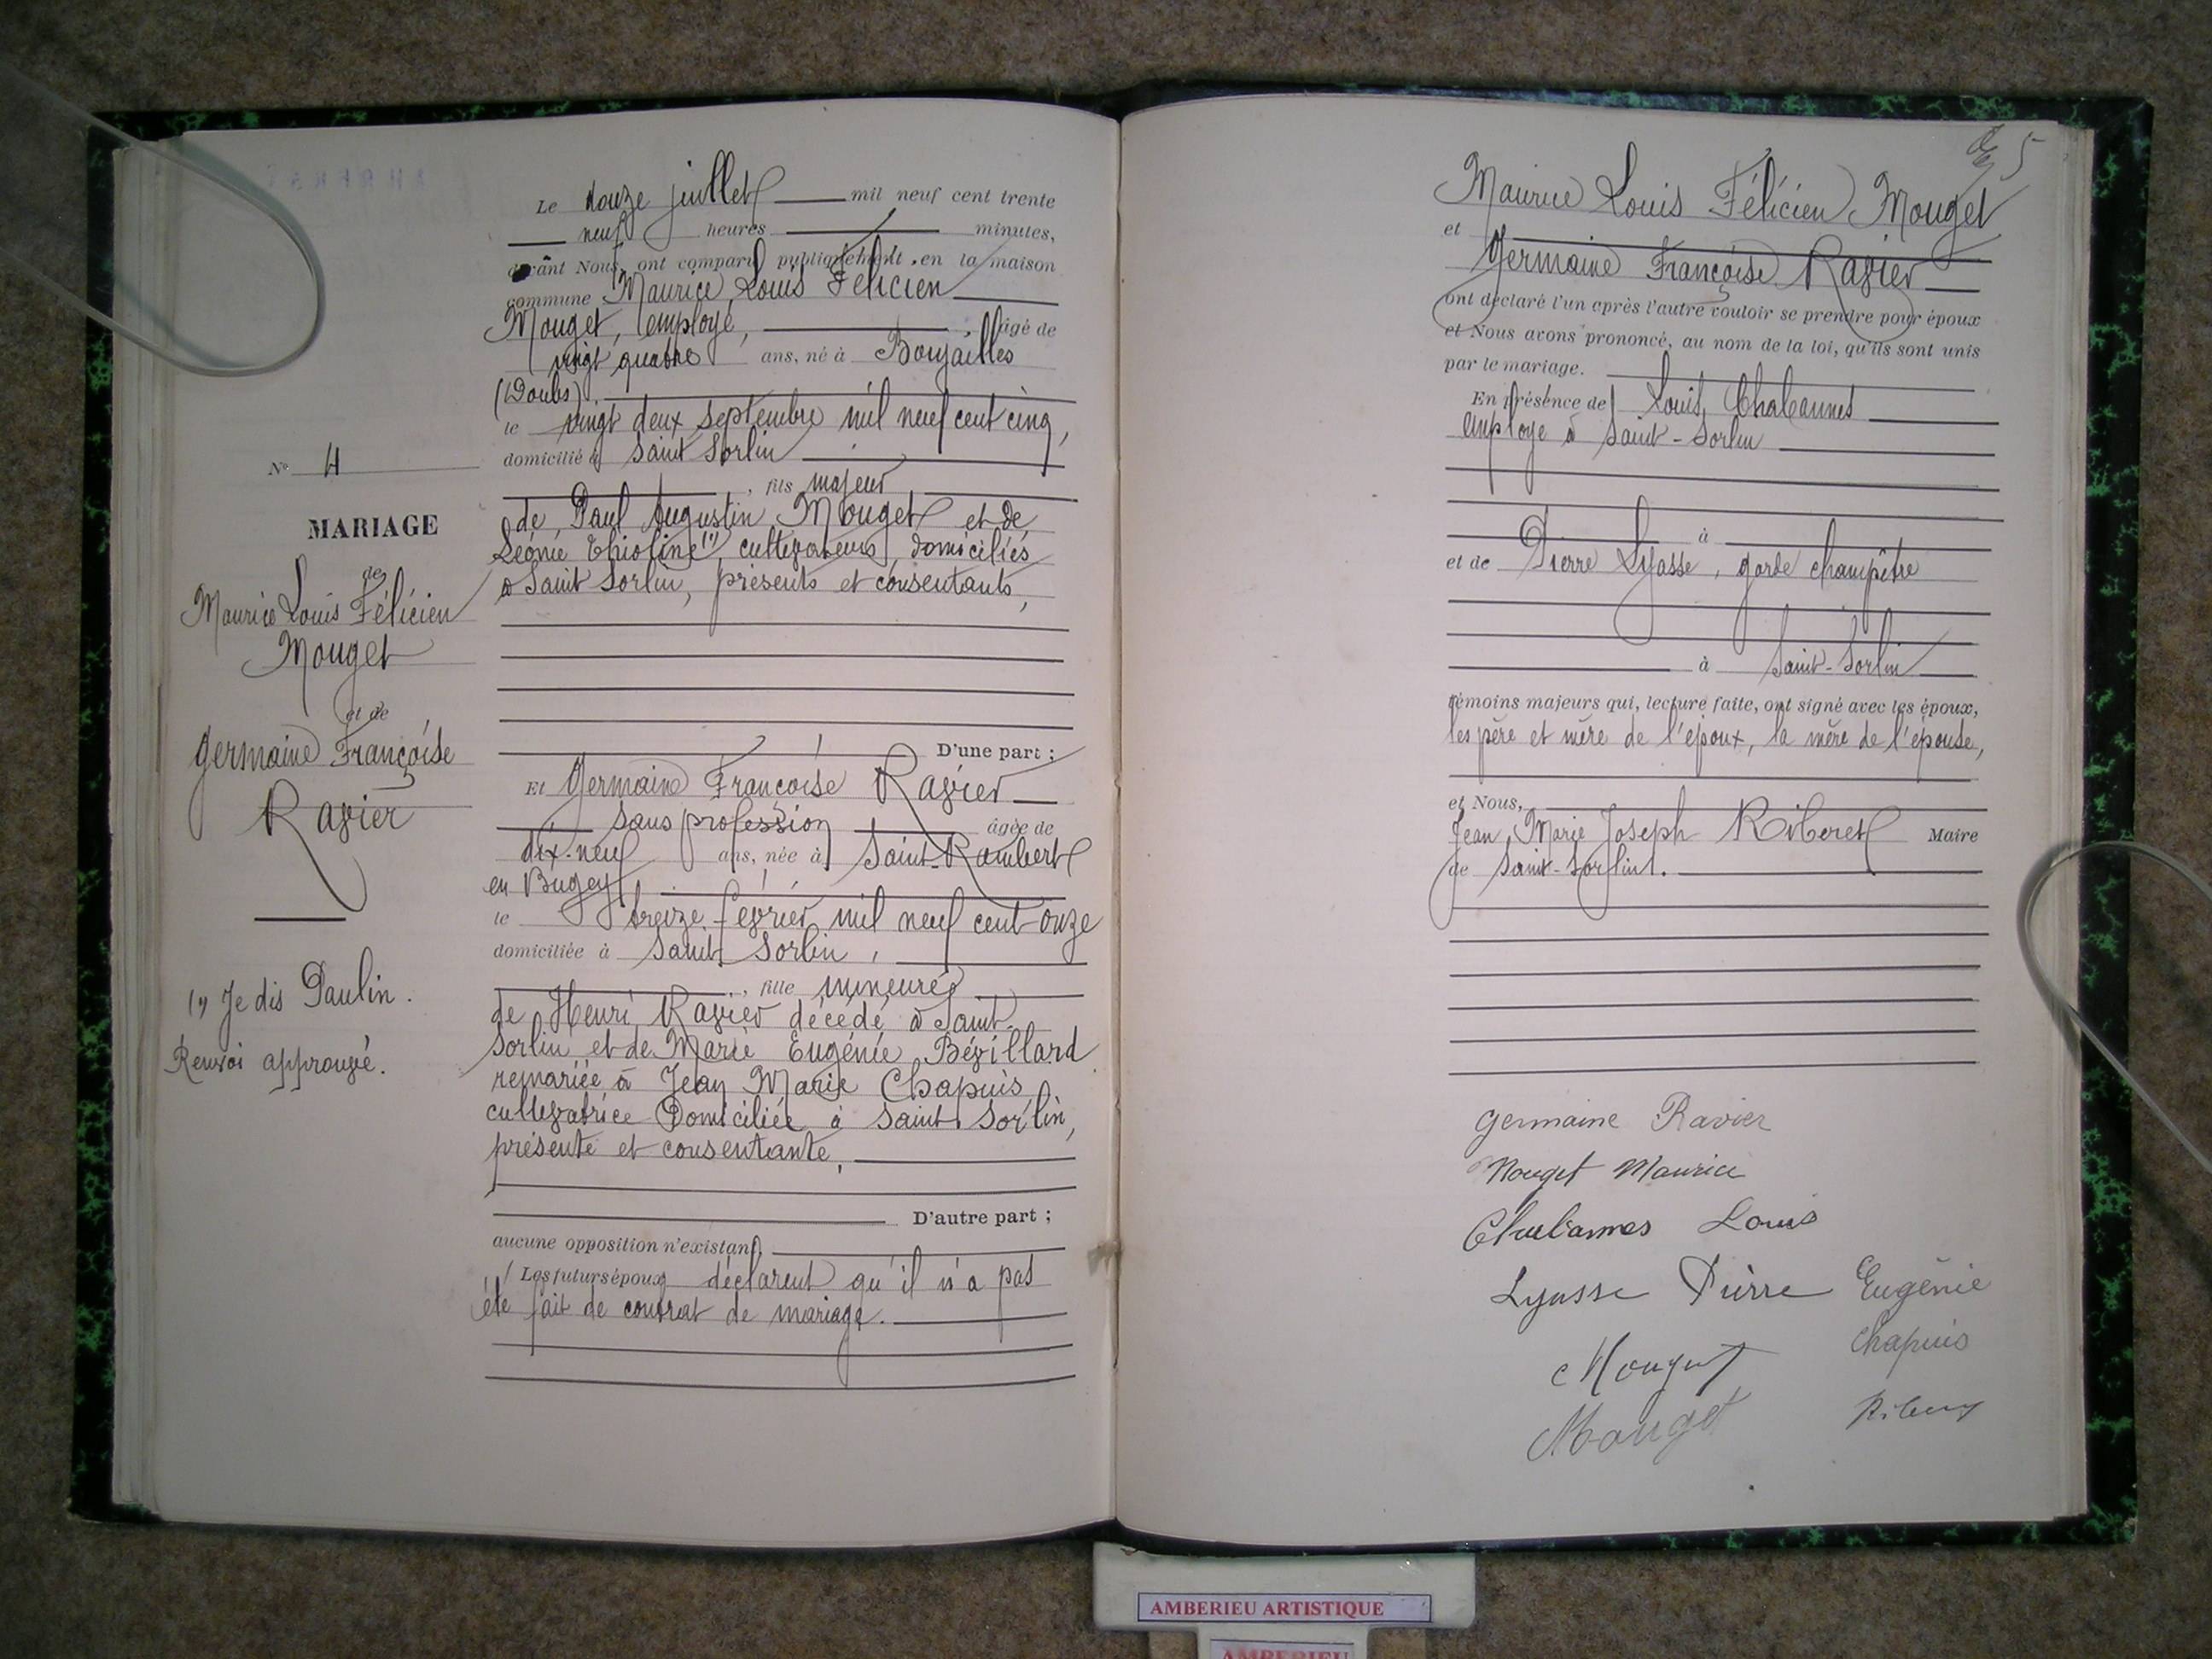 Le douze juillet mil neuf cent trente
neuf heures minutes,
devant Nous, ont comparu publiquement en la maison
commune Maurice Louis Félicien
Mouget, employé, âgé de
vingt quatre ans, né à Boujailles
(Doubs)
le vingt deux septembre mil neuf cent cinq,
domicilié à Saint Sorlin
, fils majeur
de Paul Augustin Mouget et de
Léonie (1), cultivateurs, domiciliés
à Saint Sorlin, présents et consentants,
D'une part ;
Et Germaine Françoise Ravier
sans profession âgée de
dix-neuf ans, née à Saint-Rambert
en Bugey,
le treize février mil neuf cent onze
domiciliée à Saint Sorlin,
, fille mineure
de Henri Ravier décédé à Saint
Sorlin et de Marie Eugénie Bévillard
remariée à Jean Marie Chapuis
cultivatrice Domiciliée à Saint Sorlin,
présente et consentante,
D'autre part ;
aucune opposition n'existant,
Les futurs époux déclarent qu'il n'a pas
été fait de contrat de mariage.
N° 4
MARIAGE
de
Maurice Louis Félicien
Mouget
et de
Germaine Françoise
Ravier
(1) Je dis Paulin.
Renvoi approuvé.
5
Maurice Louis Félicien Mouget
et
Germaine Françoise Ravier
ont déclaré l'un après l'autre vouloir se prendre pour époux
et Nous avons prononcé, au nom de la loi, qu'ils sont unis
par le mariage.
En présence de Louis Chabannes
employé à Saint-Sorlin
à
et de Pierre Lyasse, garde champêtre
à Saint-Sorlin
témoins majeurs qui, lecture faite, ont signé avec les époux,
les père et mère de l'époux, la mère de l'épouse,
et Nous,
Jean Marie Joseph Riberet Maire
de Saint-Sorlin.
Germaine Ravier
Mouget Maurice
Chabannes Louis
Lyasse Pierre Eugénie
Chapuis
Mouget
Mouget
AMBERIEU ARTISTIQUE
AMBERIEU